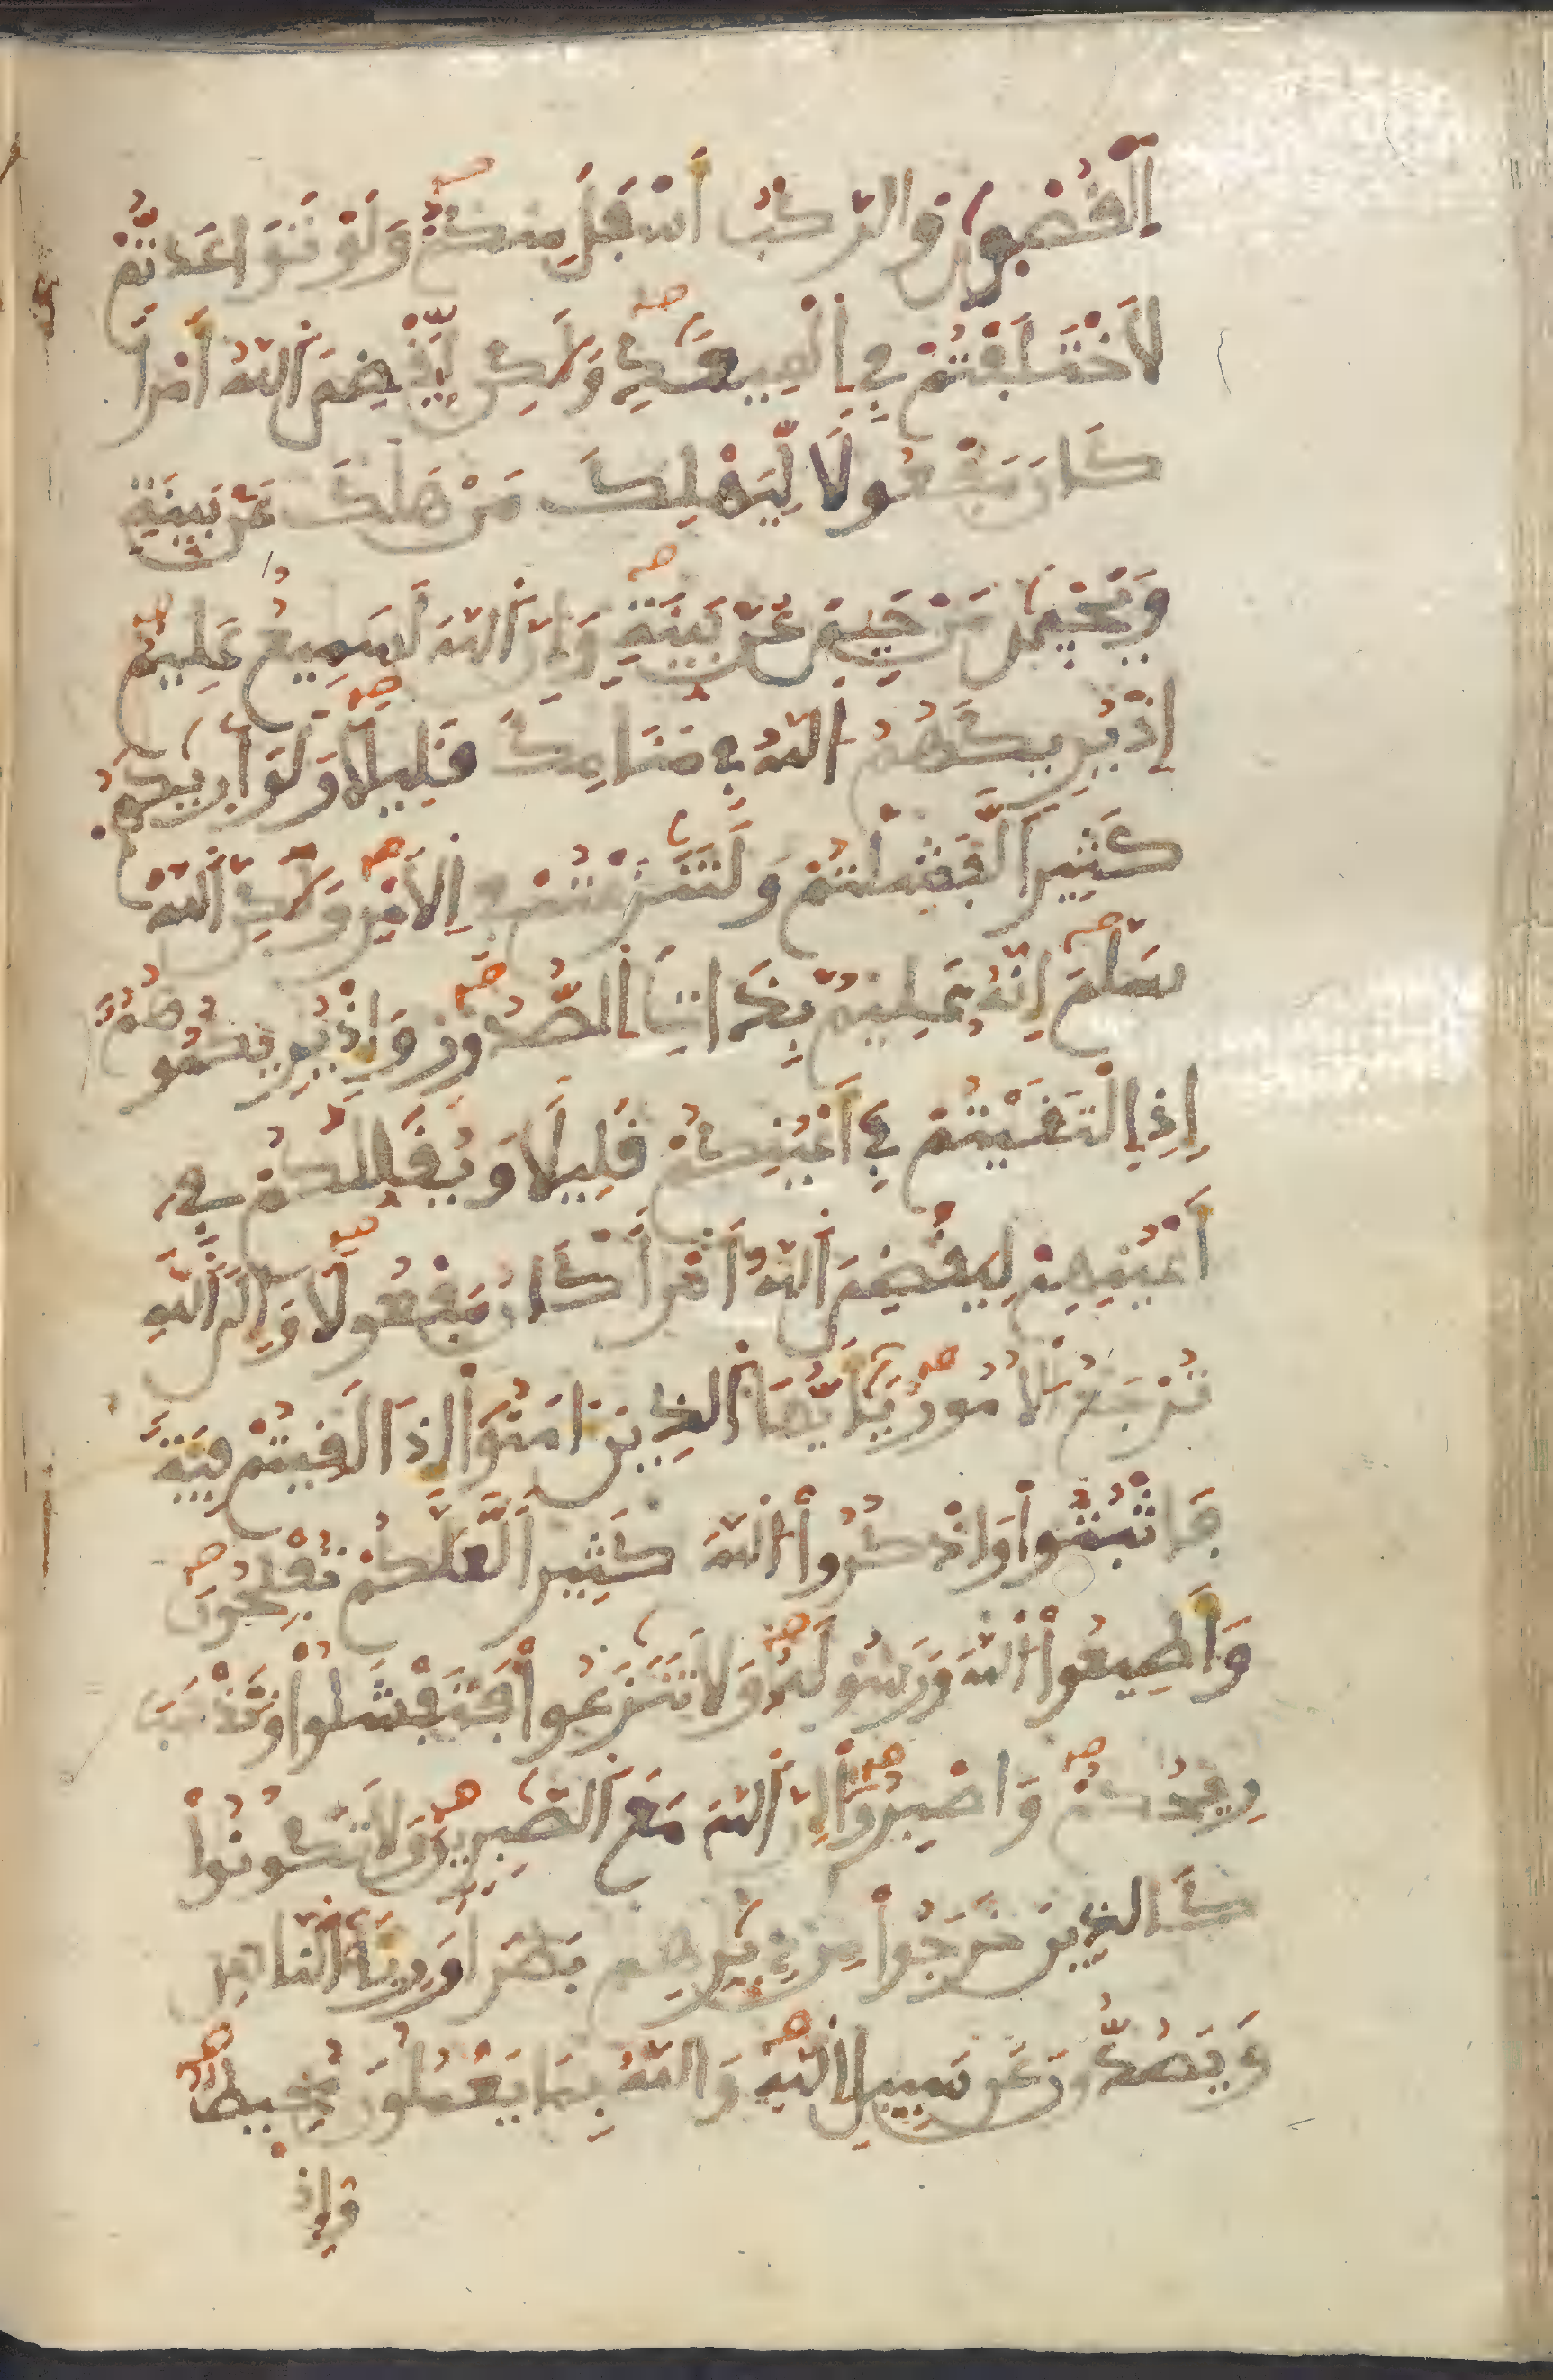 اَ۬لْقُصْو۪يٰ وَالرَّكْبُ أَسْفَلَ مِنكُمْ وَلَوْ تَوَاعَدتُّمْ
لَاخْتَلَفْتُمْ فِے اِ۬لْمِيعَٰدِ وَلَٰكِن لِّيَقْضِيَ اَ۬للَّهُ أَمْراٗ
كَانَ مَفْعُولاٗ لِّيَهْلِكَ مَنْ هَلَكَ عَنۢ بَيِّنَةٖ
وَيَحْيىٰ مَنْ حَيِيَ عَنۢ بَيِّنَةٖ وَإِنَّ اَ۬للَّهَ لَسَمِيعٌ عَلِيمٌ
إِذْ يُرِيكَهُمُ اُ۬للَّهُ فِے مَنَامِكَ قَلِيلاٗ وَلَوْ أَر۪يٰكَهُمْ
كَثِيراٗ لَّفَشِلْتُمْ وَلَتَنَٰزَعْتُمْ فِے اِ۬لَامْرِ وَلَٰكِنَّ اَ۬للَّهَ
سَلَّمَ إِنَّهُۥ عَلِيمُۢ بِذَاتِ اِ۬لصُّدُورِ وَإِذْ يُرِيكُمُوهُمُۥٓ
إِذِ اِ۬لْتَقَيْتُمْ فِےٓ أَعْيُنِكُمْ قَلِيلاٗ وَيُقَلِّلُكُمْ فِےٓ
أَعْيُنِهِمْ لِيَقْضِيَ اَ۬للَّهُ أَمْراٗ كَانَ مَفْعُولاٗ وَإِلَي اَ۬للَّهِ
تُرْجَعُ اُ۬لُامُورُ يَٰٓأَيُّهَا اَ۬لذِينَ ءَامَنُوٓاْ إِذَا لَقِيتُمْ فِيَةٗ
فَاثْبُتُواْ وَاذْكُرُواْ اُ۬للَّهَ كَثِيراٗ لَّعَلَّكُمْ تُفْلِحُونَ
وَأَطِيعُواْ اُ۬للَّهَ وَرَسُولَهُۥ وَلَا تَنَٰزَعُواْ فَتَفْشَلُواْ وَتَذْهَبَ
رِيحُكُمْ وَاصْبِرُوٓاْ إِنَّ اَ۬للَّهَ مَعَ اَ۬لصَّٰبِرِينَ وَلَا تَكُونُواْ
كَالذِينَ خَرَجُواْ مِن دِيَٰرِهِم بَطَراٗ وَرِئَآءَ اَ۬لنَّاسِ
وَيَصُدُّونَ عَن سَبِيلِ اِ۬للَّهِ وَاللَّهُ بِمَا يَعْمَلُونَ مُحِيطٌ
وَإِذْ